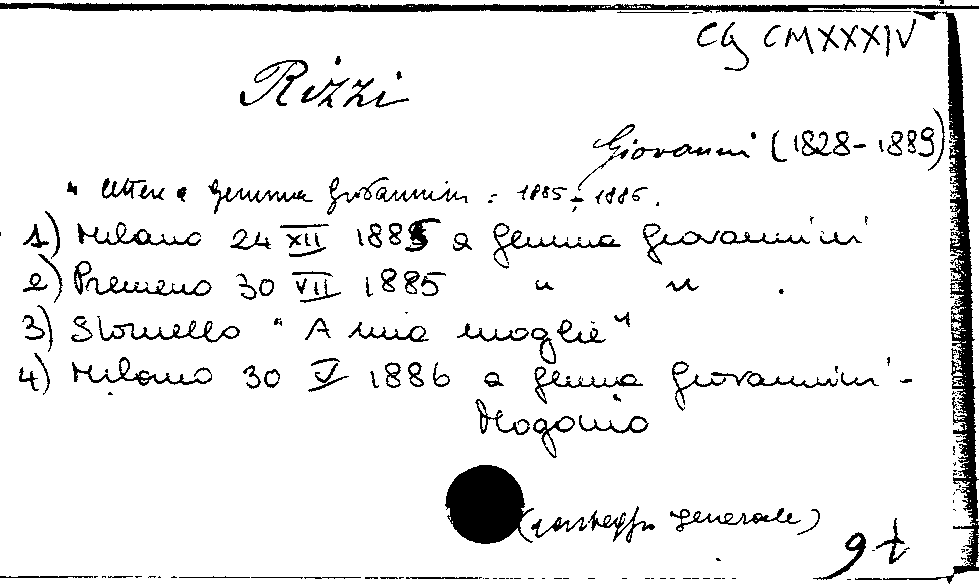 CG CMXXXIV
Rizzi
Giovanni (1828-1889)
" lettere a Gemma Giovannini : 1885 - 1886.
1) Milano 24 XII 1885 a Gemma Giovannini
2) Premeno 30 VII 1885 " " .
3) Stornello "A mia moglie"
4) Milano 30 V 1886 a Gemma Giovannini -
Magonio
(carteggio generale)
9t